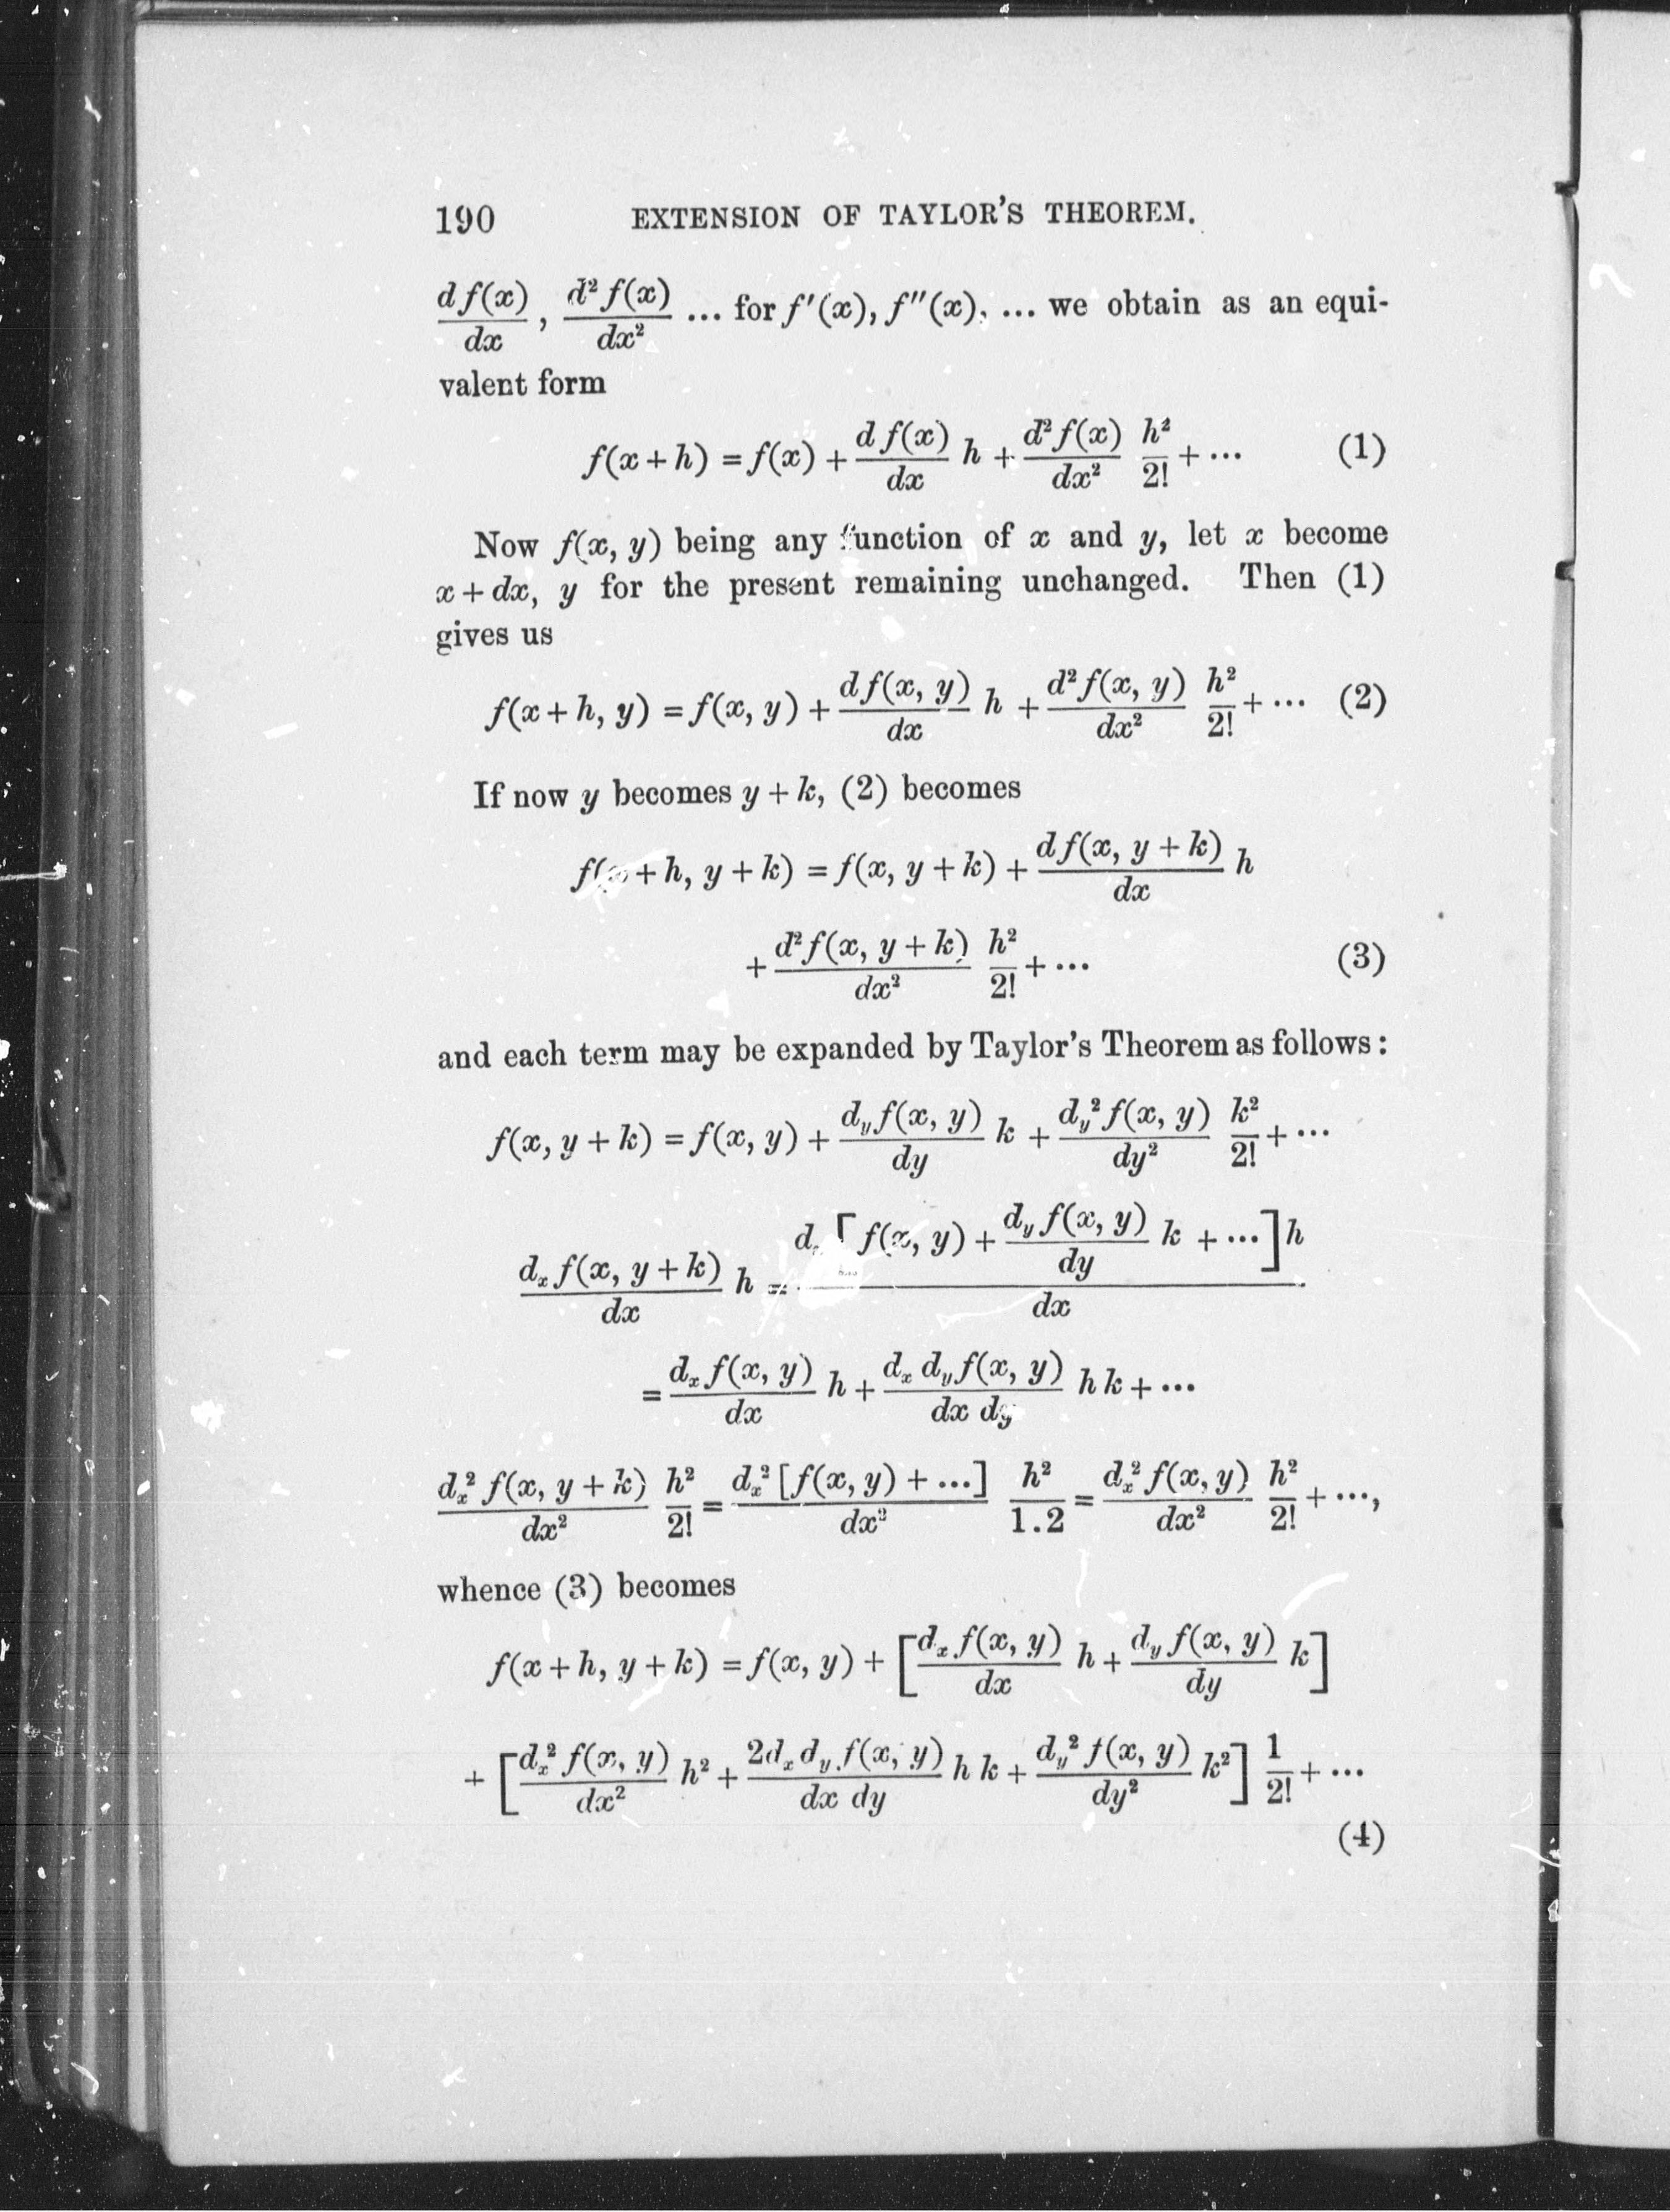 190 EXTENSION OF TAYLOR'S THEOREM.
$\frac{d f(x)}{dx}$, $\frac{d^2 f(x)}{dx^2}$ ... for $f'(x), f''(x)$, ... we obtain as an equi-
valent form
$f(x+h) = f(x) + \frac{d f(x)}{dx} h + \frac{d^2 f(x)}{dx^2} \frac{h^2}{2!} + \cdots$ (1)
Now $f(x, y)$ being any function of $x$ and $y$, let $x$ become
$x + dx$, $y$ for the present remaining unchanged. Then (1)
gives us
$f(x+h, y) = f(x, y) + \frac{d f(x, y)}{dx} h + \frac{d^2 f(x, y)}{dx^2} \frac{h^2}{2!} + \cdots$ (2)
If now $y$ becomes $y + k$, (2) becomes
$f(x+h, y+k) = f(x, y+k) + \frac{d f(x, y+k)}{dx} h$
$+ \frac{d^2 f(x, y+k)}{dx^2} \frac{h^2}{2!} + \cdots$ (3)
and each term may be expanded by Taylor's Theorem as follows:
$f(x, y+k) = f(x, y) + \frac{d_y f(x, y)}{dy} k + \frac{d_y^2 f(x, y)}{dy^2} \frac{k^2}{2!} + \cdots$
$\frac{d_x f(x, y+k)}{dx} h = \frac{d_x \left[ f(x, y) + \frac{d_y f(x, y)}{dy} k + \cdots \right] h}{dx}$
$= \frac{d_x f(x, y)}{dx} h + \frac{d_x d_y f(x, y)}{dx\, dy} h k + \cdots$
$\frac{d_x^2 f(x, y+k)}{dx^2} \frac{h^2}{2!} = \frac{d_x^2 [f(x, y) + \ldots]}{dx^2} \frac{h^2}{1.2} = \frac{d_x^2 f(x, y)}{dx^2} \frac{h^2}{2!} + \cdots,$
whence (3) becomes
$f(x+h, y+k) = f(x, y) + \left[ \frac{d_x f(x, y)}{dx} h + \frac{d_y f(x, y)}{dy} k \right]$
$+ \left[ \frac{d_x^2 f(x, y)}{dx^2} h^2 + \frac{2 d_x d_y f(x, y)}{dx\, dy} h k + \frac{d_y^2 f(x, y)}{dy^2} k^2 \right] \frac{1}{2!} + \cdots$
(4)